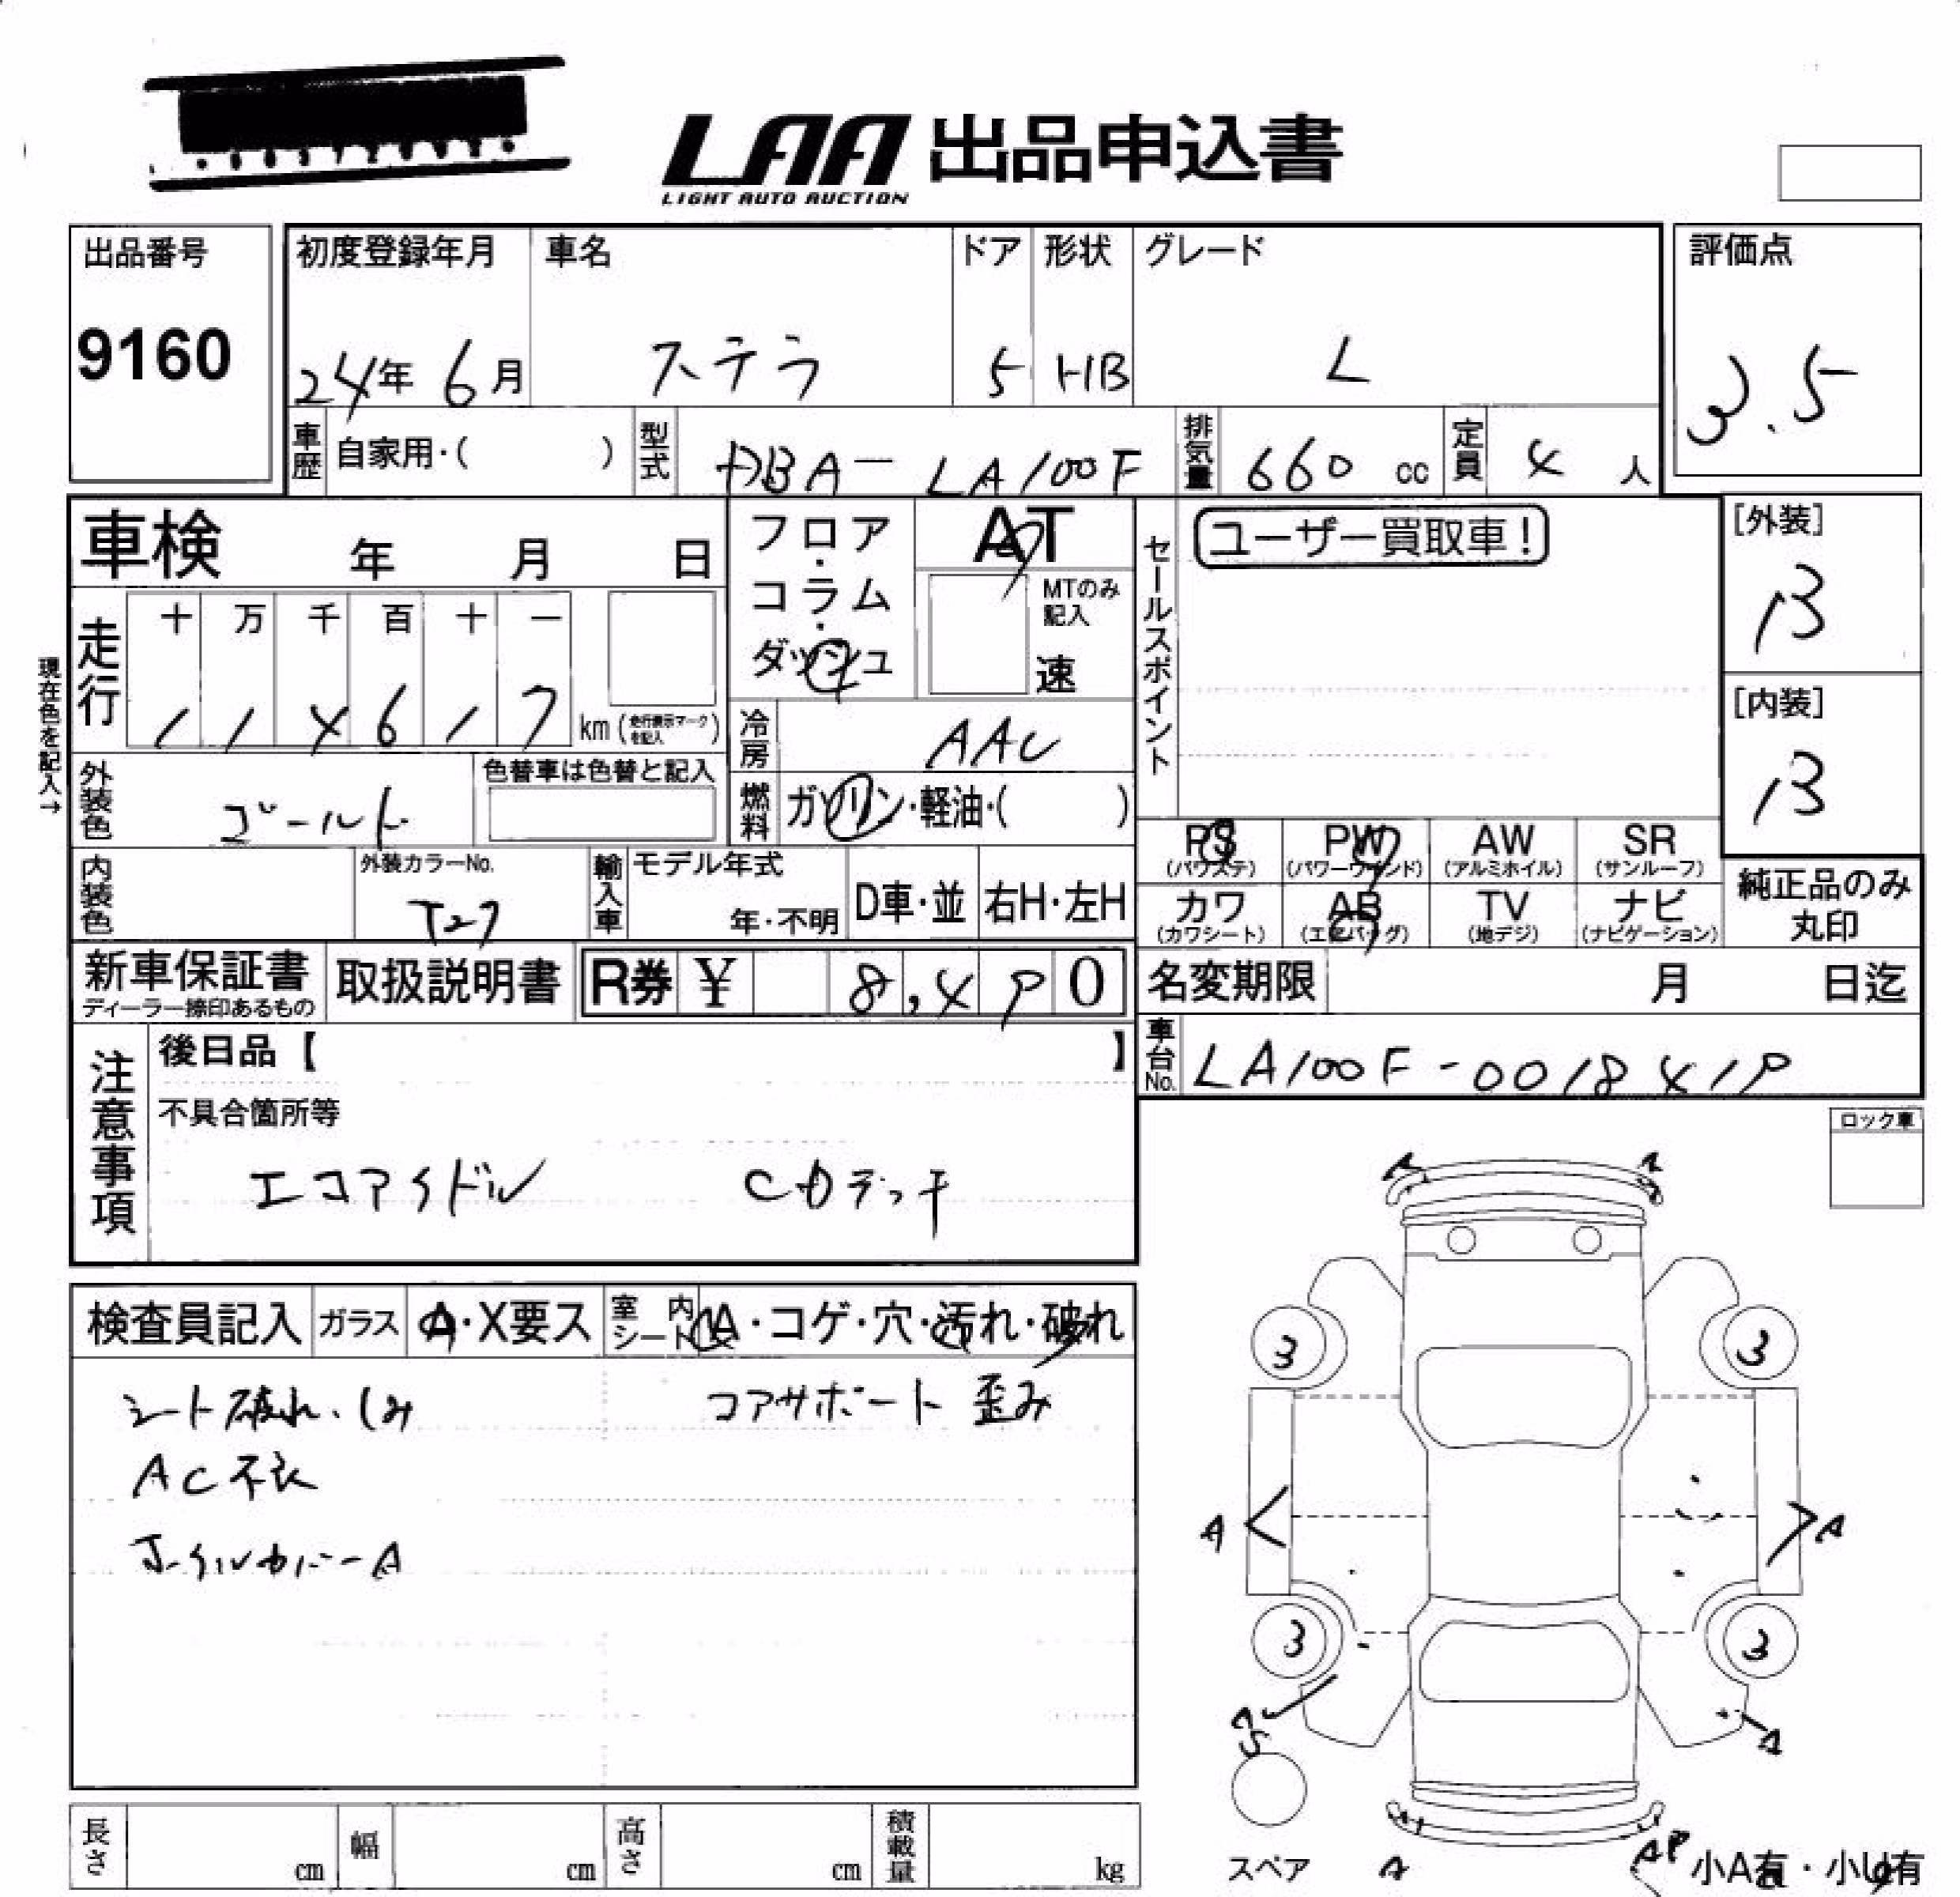 LAA 出品申込書
LIGHT AUTO AUCTION
出品番号
9160
初度登録年月
24年 6月
車名
ステラ
ドア
5
形状
HB
グレード
L
評価点
3.5
車歴 自家用・( )
型式 DBA-LA100F
排気量 660 cc
定員 4 人
車検 年 月 日
フロア・コラム・ダッシュ
AT
MTのみ記入
速
セールスポイント
ユーザー買取車!
[外装]
B
[内装]
B
現在色を記入→
走行
十 万 千 百 十 一
1 1 4 6 1 7 km (走行表示マークを記入)
冷房 AAC
外装色 ゴールド
色替車は色替と記入
燃料 ガソリン・軽油・( )
PS (パワステ)
PW (パワーウインド)
AW (アルミホイル)
SR (サンルーフ)
カワ (カワシート)
AB (エアバッグ)
TV (地デジ)
ナビ (ナビゲーション)
純正品のみ丸印
内装色
外装カラーNo.
T27
輸入車
モデル年式
年・不明
D車・並
右H・左H
新車保証書
ディーラー捺印あるもの
取扱説明書
R券 ¥ 8,490
名変期限 月 日迄
車台No. LA100F-0018419
注意事項
後日品【 】
不具合箇所等
エコアイドル CDデッキ
ロック車
検査員記入 ガラス A・X要ス 室内シート A・コゲ・穴・汚れ・破れ
シート破れ、しみ コアサポート 歪み
AC不良
ホイルカバーA
A A
3 3
A A
3 3
A
S A
スペア A AP 小A有・小U有
長さ cm 幅 cm 高さ cm 積載量 kg